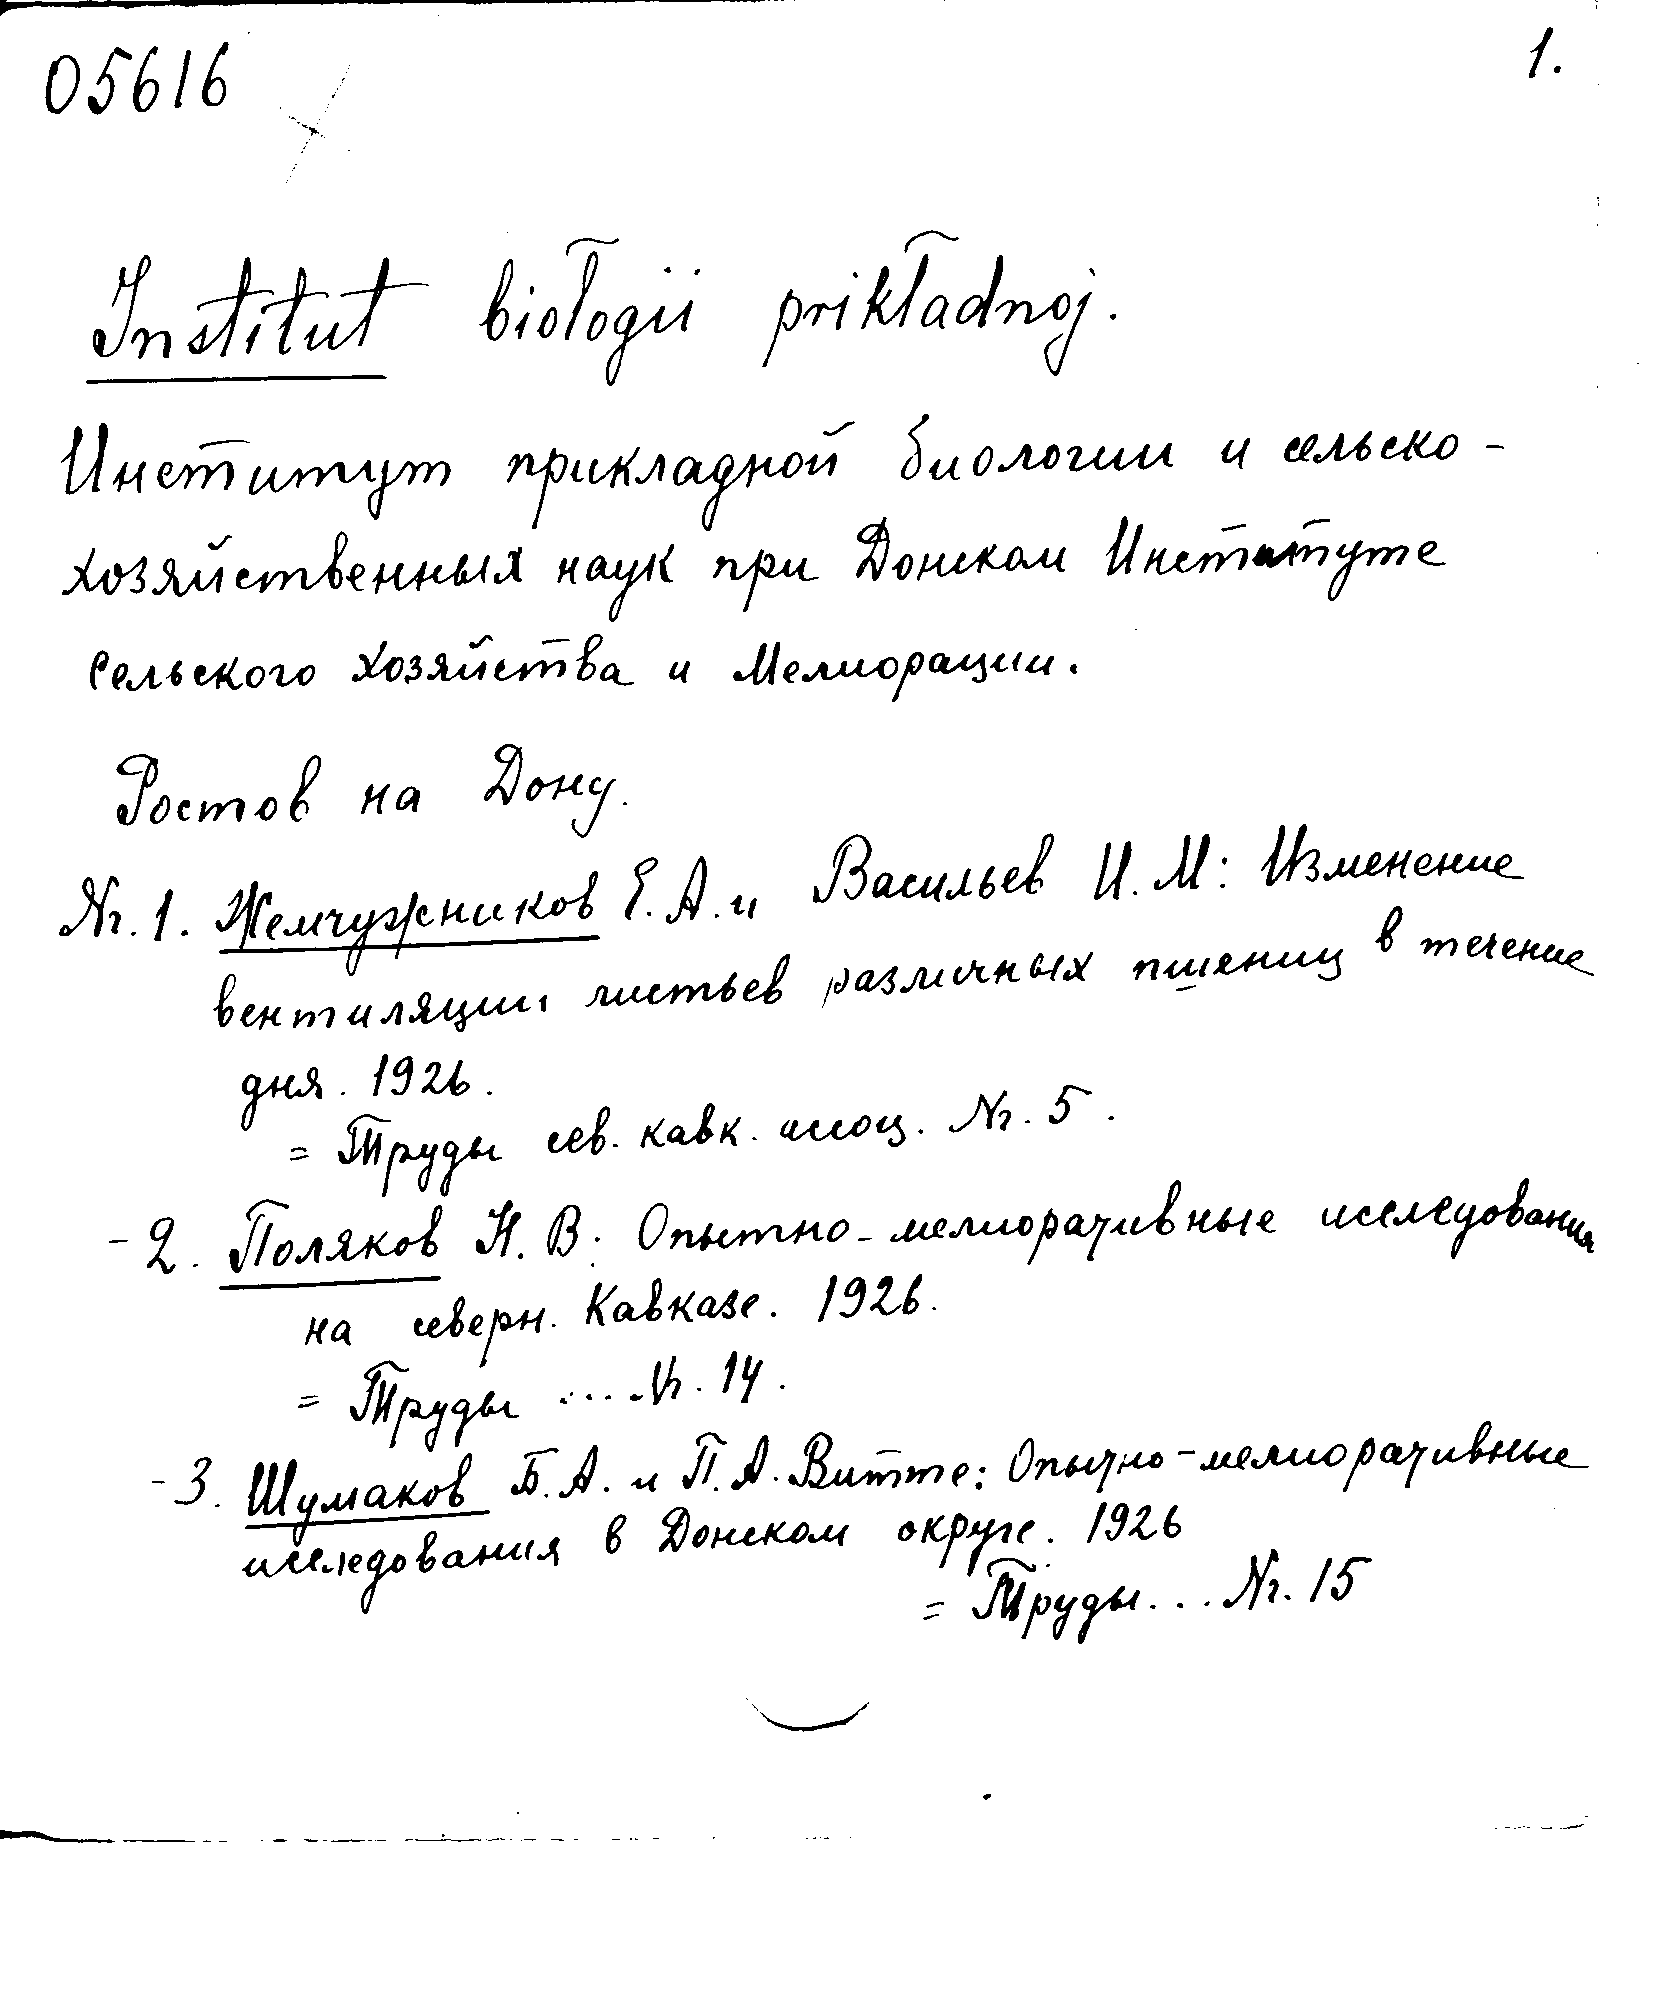 05616
1.
Institut biol̃ogii prikl̃adnoj.
Институт прикладной биологии и сельско-
хозяйственных наук при Донском Институте
сельского хозяйства и Мелиорации.
Ростов на Дону.
Nr. 1. Жемчужников Е. А. и Васильев И. М: Изменение
вентиляции листьев различных пшениц в течение
дня. 1926.
= Труды сев. кавк. ассоц. Nr. 5.
- 2. Поляков Н. В: Опытно-мелиоративные исследования
на северн. Кавказе. 1926.
= Труды .... Nr. 14.
- 3. Шумаков Б. А. и П. А. Витте: Опытно-мелиоративные
исследования в Донском округе. 1926
= Труды... Nr. 15